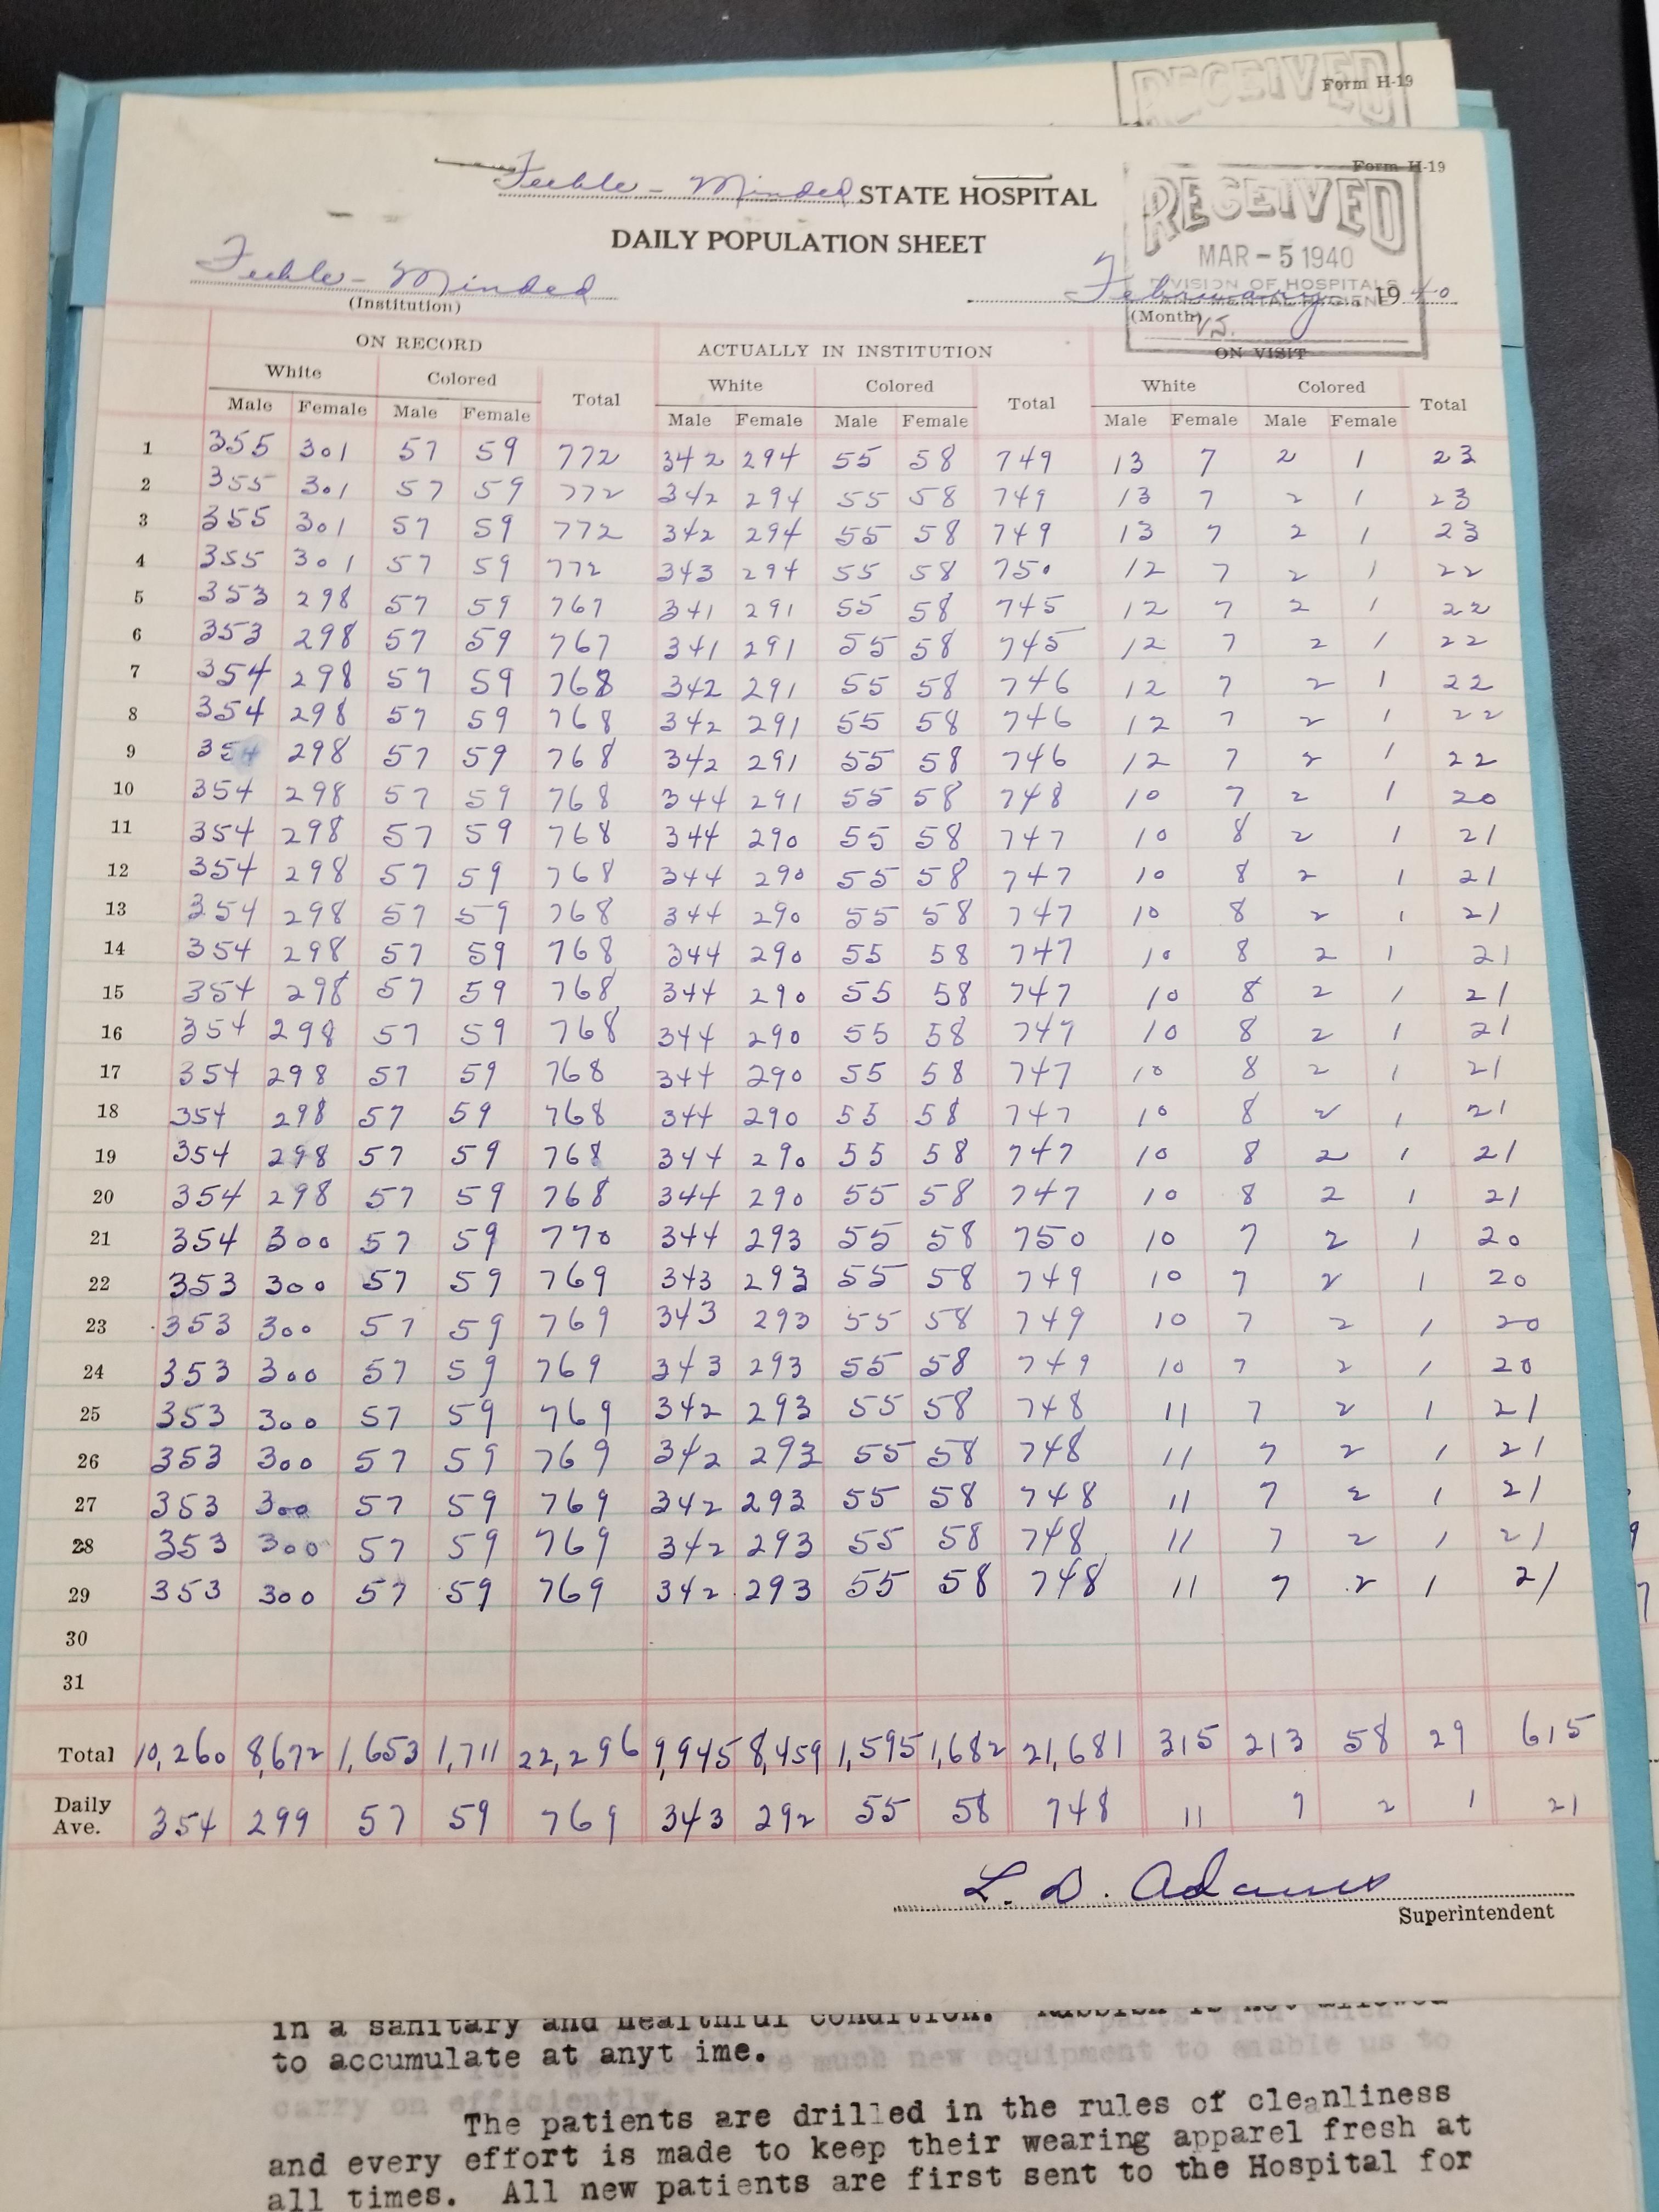 RECEIVED
Form H-19
Form H-19
Feeble-Minded STATE HOSPITAL
RECEIVED
DAILY POPULATION SHEET
MAR - 5 1940
DIVISION OF HOSPITALS
MENTAL HYGIENE
Feeble-Minded February 1940
(Institution) (Month) VS.
ON RECORD ACTUALLY IN INSTITUTION ON VISIT
White Colored Total White Colored Total White Colored Total
Male Female Male Female Male Female Male Female Male Female Male Female
1 355 301 57 59 772 342 294 55 58 749 13 7 2 1 23
2 355 301 57 59 772 342 294 55 58 749 13 7 2 1 23
3 355 301 57 59 772 342 294 55 58 749 13 7 2 1 23
4 355 301 57 59 772 343 294 55 58 750 12 7 2 1 22
5 353 298 57 59 767 341 291 55 58 745 12 7 2 1 22
6 353 298 57 59 767 341 291 55 58 745 12 7 2 1 22
7 354 298 57 59 768 342 291 55 58 746 12 7 2 1 22
8 354 298 57 59 768 342 291 55 58 746 12 7 2 1 22
9 354 298 57 59 768 342 291 55 58 746 12 7 2 1 22
10 354 298 57 59 768 344 291 55 58 748 10 7 2 1 20
11 354 298 57 59 768 344 290 55 58 747 10 8 2 1 21
12 354 298 57 59 768 344 290 55 58 747 10 8 2 1 21
13 354 298 57 59 768 344 290 55 58 747 10 8 2 1 21
14 354 298 57 59 768 344 290 55 58 747 10 8 2 1 21
15 354 298 57 59 768 344 290 55 58 747 10 8 2 1 21
16 354 298 57 59 768 344 290 55 58 747 10 8 2 1 21
17 354 298 57 59 768 344 290 55 58 747 10 8 2 1 21
18 354 298 57 59 768 344 290 55 58 747 10 8 2 1 21
19 354 298 57 59 768 344 290 55 58 747 10 8 2 1 21
20 354 298 57 59 768 344 290 55 58 747 10 8 2 1 21
21 354 300 57 59 770 344 293 55 58 750 10 7 2 1 20
22 353 300 57 59 769 343 293 55 58 749 10 7 2 1 20
23 353 300 57 59 769 343 293 55 58 749 10 7 2 1 20
24 353 300 57 59 769 343 293 55 58 749 10 7 2 1 20
25 353 300 57 59 769 342 293 55 58 748 11 7 2 1 21
26 353 300 57 59 769 342 293 55 58 748 11 7 2 1 21
27 353 300 57 59 769 342 293 55 58 748 11 7 2 1 21
28 353 300 57 59 769 342 293 55 58 748 11 7 2 1 21
29 353 300 57 59 769 342 293 55 58 748 11 7 2 1 21
30
31
Total 10,260 8,672 1,653 1,711 22,296 9,945 8,459 1,595 1,682 21,681 315 213 58 29 615
Daily Ave. 354 299 57 59 769 343 292 55 58 748 11 7 2 1 21
L. D. Adams
Superintendent
in a sanitary and healthful condition. Rubbish is not allowed
to accumulate at anyt ime.
The patients are drilled in the rules of cleanliness
and every effort is made to keep their wearing apparel fresh at
all times. All new patients are first sent to the Hospital for